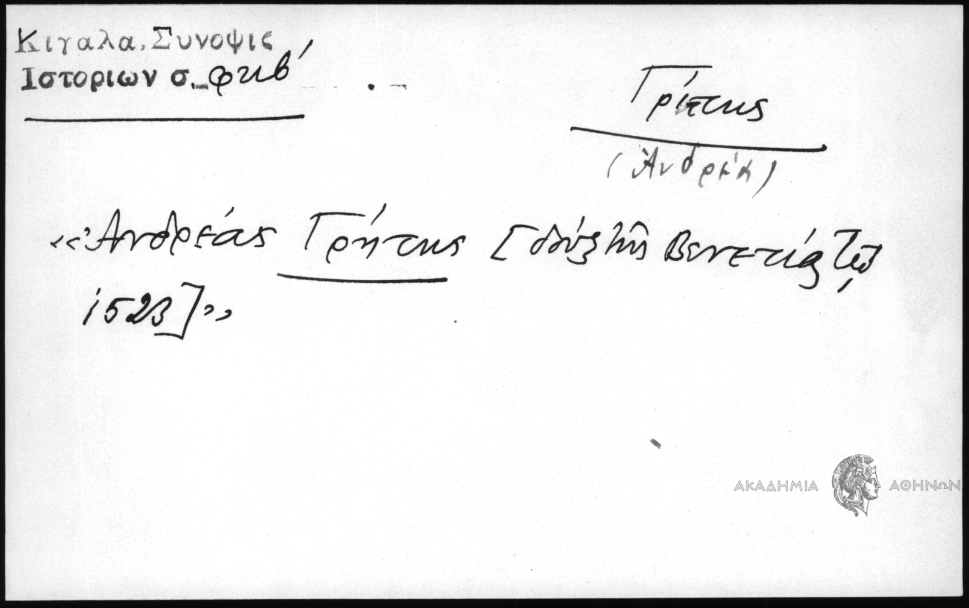 Κιγαλα, Συνοψις
Ιστοριων σ. φκβ΄
Γρίτης
(Ἀνδρέα)
«Ἀνδρέας Γρήτης [δοὺξ τῆς Βενετίας τῷ
1523]»
ΑΚΑΔΗΜΙΑ ΑΘΗΝΩΝ